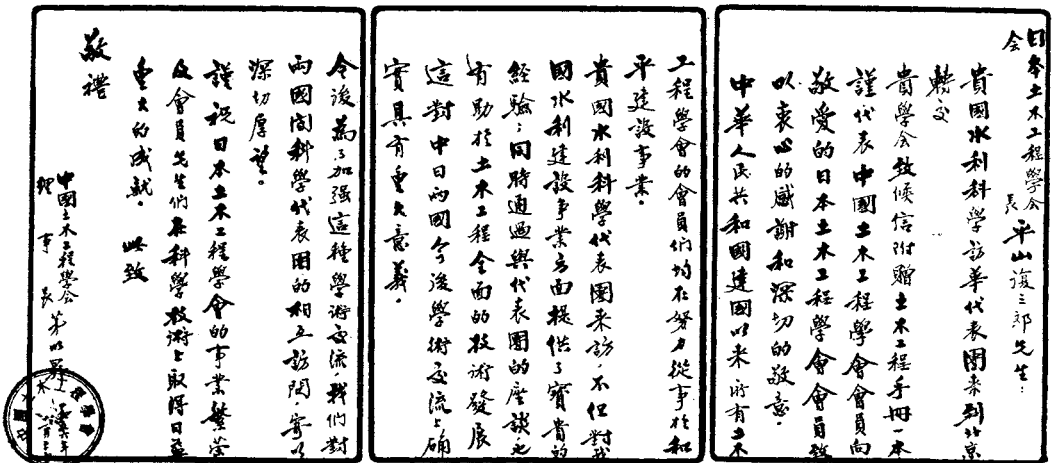 日本土木工程學会
会長 平山復三郎先生：
貴國水利科學訪華代表團來到北京
轉交
貴學会致候信附贈土木工程手冊一本
謹代表中國土木工程學會會員向
敬愛的日本土木工程學會會員致
以衷心的感謝和深切的敬意。
中華人民共和國建國以來所有土木
工程學會的會員們均在努力從事於和
平建設事業。
貴國水利科學代表團來訪，不但對我
國水利建設事業方面提供了寶貴的
經驗；同時通過與代表團的座談也
有助於土木工程全面的技術發展
這對中日兩國今後學術交流上確
實具有重大意義。
今後為了加强這種學術交流我們對
兩國間科學代表團的相互訪問，寄以
深切厚望。
謹祝日本土木工程學會的事業繁荣
及會員先生們在科學技術上取得日益
重大的成就。 此致
敬禮
中國土木工程學会
理事長 茅以昇